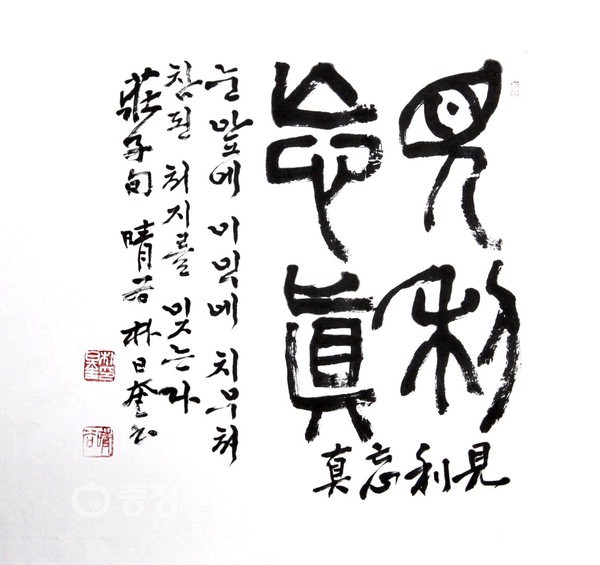 見利
忘眞
見利忘真
눈 앞에 이익에 치우쳐
참된 처지를 잊는다
莊子句 晴谷 朴日奎书
충청